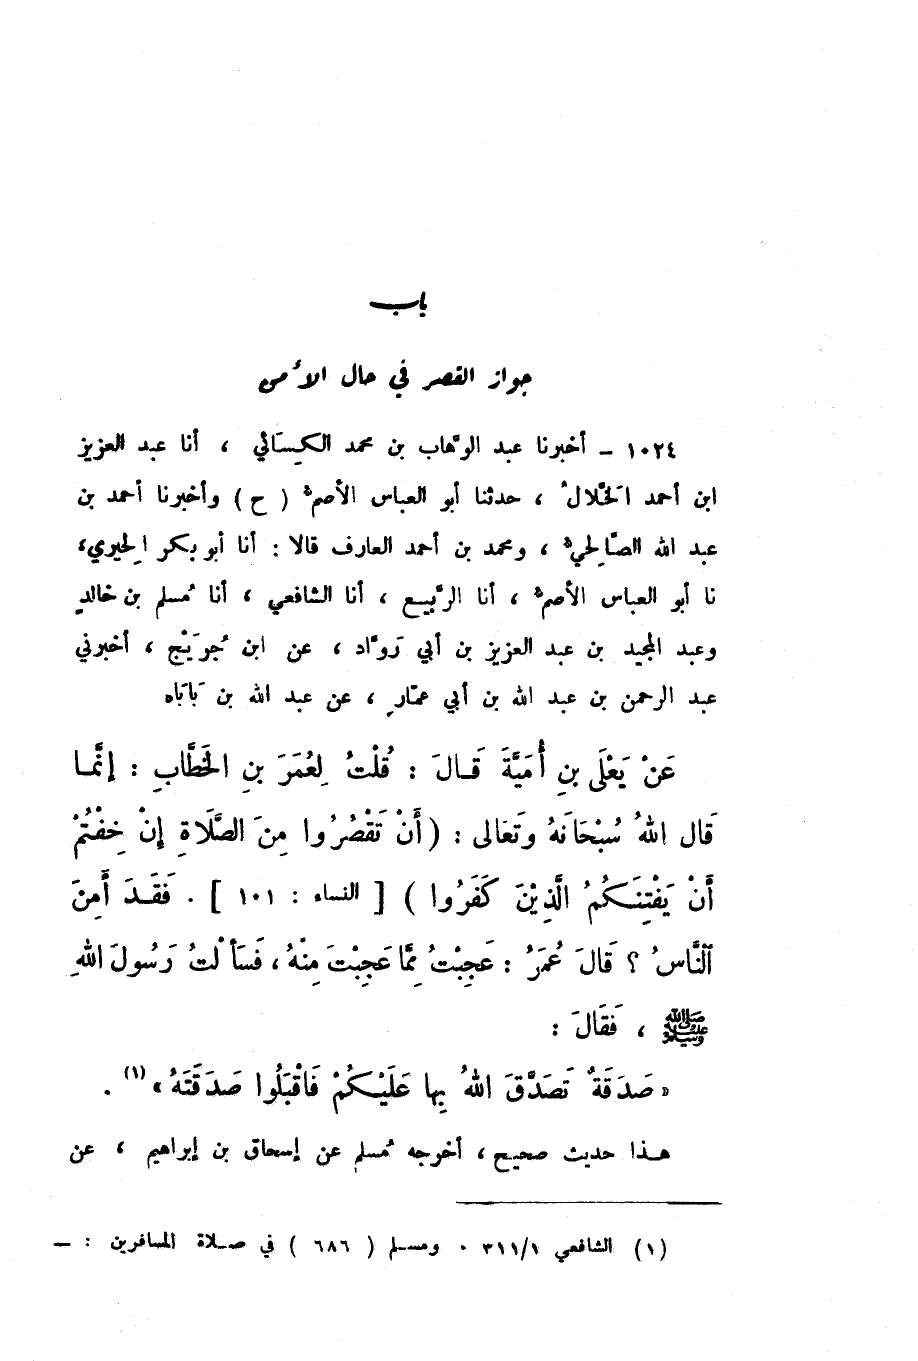 باب
جواز القصر في حال الأمن
١٠٢٤ – أخبرنا عبد الوهَّاب بن محمد الكِسَائي ، أنا عبد العزيز
ابن أحمد الخَلّالُ ، حدثنا أبو العباس الأصمُّ ( ح ) وأخبرنا أحمد بن
عبد الله الصَّالِحيُّ ، ومحمد بن أحمد العارف قالا : أنا أبو بكر الحِيري،
نا أبو العباس الأصمُّ ، أنا الرَّبيع ، أنا الشافعي ، أنا مُسلم بن خالدٍ
وعبد المجيد بن عبد العزيز بن أبي رَوَّاد ، عن ابن جُرَيْج ، أخبرني
عبد الرحمن بن عبد الله بن أبي عمّارٍ ، عن عبد الله بن بَابَاه
عَنْ يَعْلَى بنِ أُمَيَّةَ قَالَ : قُلْتُ لِعُمَرَ بنِ الخَطَّابِ : إنَّمَا
قَال اللهُ سُبْحَانَهُ وتَعَالى : (أَنْ تَقْصُرُوا مِنَ الصَّلَاةِ إِنْ خِفْتُمْ
أَنْ يَفْتِنَكُمُ الَّذِيْنَ كَفَرُوا ) [ النساء : ١٠١ ] . فَقَدَ أَمِنَ
ٱلنَّاسُ ؟ قَالَ عُمَرُ : عَجِبْتُ مِمَّا عَجِبْتَ مِنْهُ ، فَسَأَلتُ رَسُولَ اللهِ
ﷺ ، فَقَالَ :
« صَدَقَةٌ تَصَدَّقَ اللهُ بِها عَلَيْكُمْ فَاقْبَلُوا صَدَقَتَهُ »(١) .
هـذا حديث صحيح ، أخرجه مُسلم عن إسحاق بن إبراهيم ، عن
(١) الشافعي ٣١١/١ . ومسلم ( ٦٨٦ ) في صلاة المسافرين : –